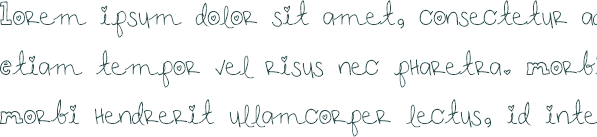 Lorem ipsum dolor sit amet, consectetur
etiam tempor vel risus nec pharetra. morbi
morbi hendrerit ullamcorper lectus, id inte